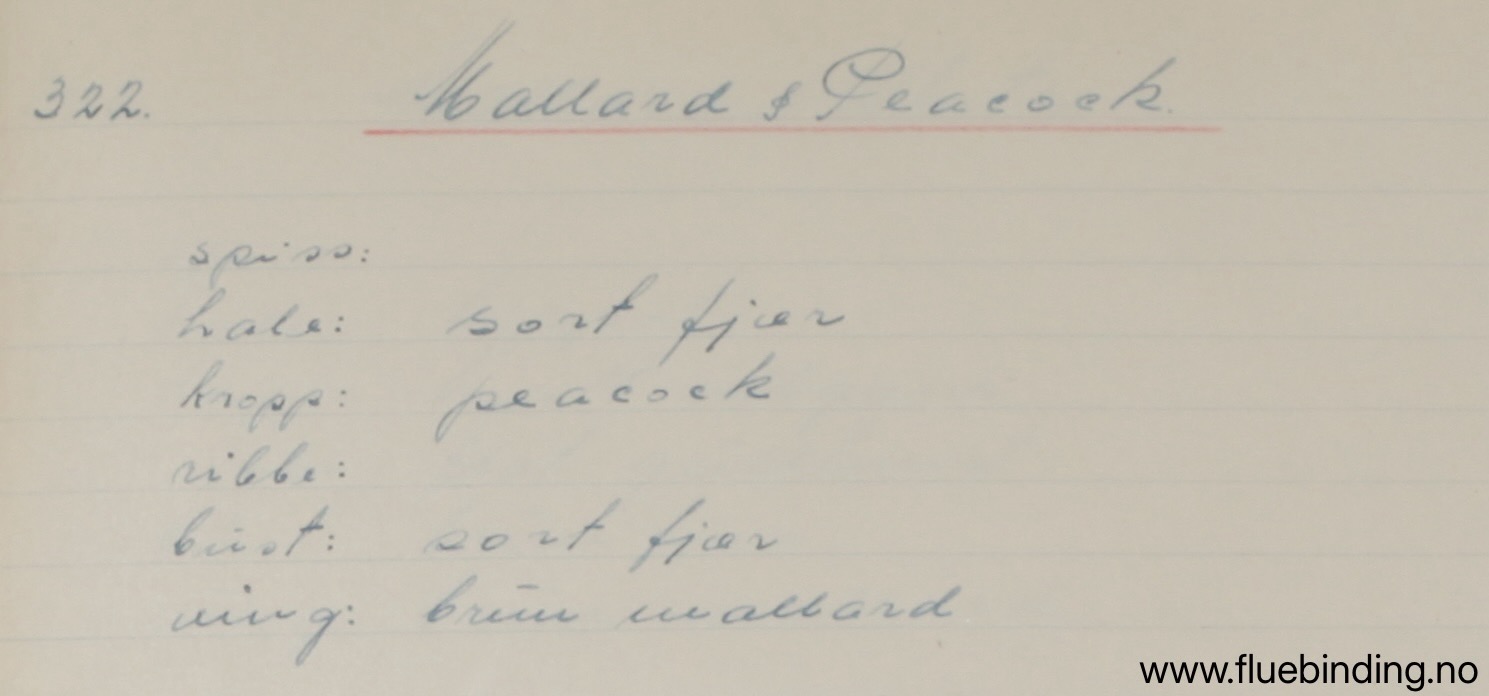 322. Mallard & Peacock.
spiss:
hale: sort fjær
kropp: peacock
ribbe:
bust: sort fjær
ving: brun mallard
www.fluebinding.no